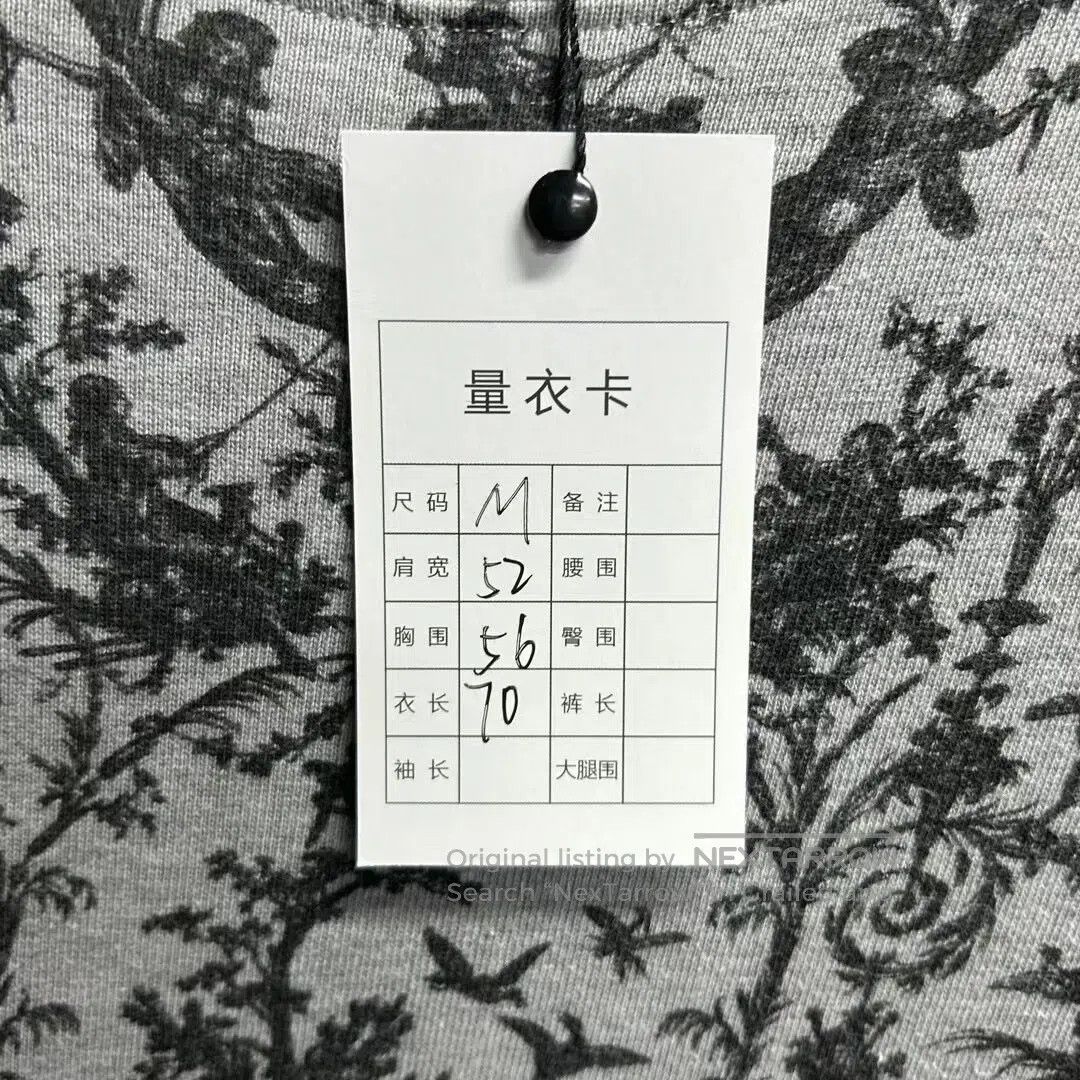 量衣卡
尺码 M 备注
肩宽 52 腰围
胸围 56 臀围
衣长 70 裤长
袖长 大腿围
Original listing by NEXTARROW
Search "NexTarrow"